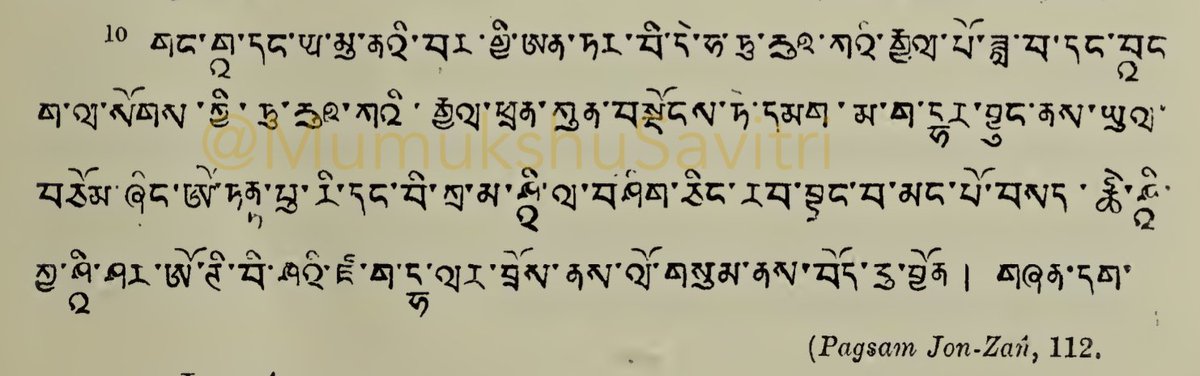 10 གང་གཱ་དང་ཡ་མུ་ནའི་བར་གྱི་ཨན་ཏར་བི་དེ་ཧ་ཏུ་རུཥ་ཀའི་རྒྱལ་པོ་ཟླ་བ་དང་བཱང
ག་ལ་སོགས་ཀྱི་ཏུ་རུཥ་ཀའི་རྒྱལ་ཕྲན་ཀུན་བསྡོངས་ཏེ་དམག་མ་ག་དྷར་བྱུང་ནས་ཡུལ་
བཅོམ་ཞིང་ཨོ་ཏནྟ་པུ་རི་དང་བི་ཀྲ་མ་ཤཱི་ལ་བཤིག་ཅིང་རབ་བྱང་བ་མང་པོ་བསད་
ཀྱ་ཤཱི་ཤར་ཨོ་ཌི་བི་ཤའི་ཛ་ག་དྷ་ལར་བྲོས་ནས་ལོ་གསུམ་ནས་བོད་དུ་བྱོན། གཞན་དག་
(Pagsam Jon-Zań, 112.
@MumukshuSavitri